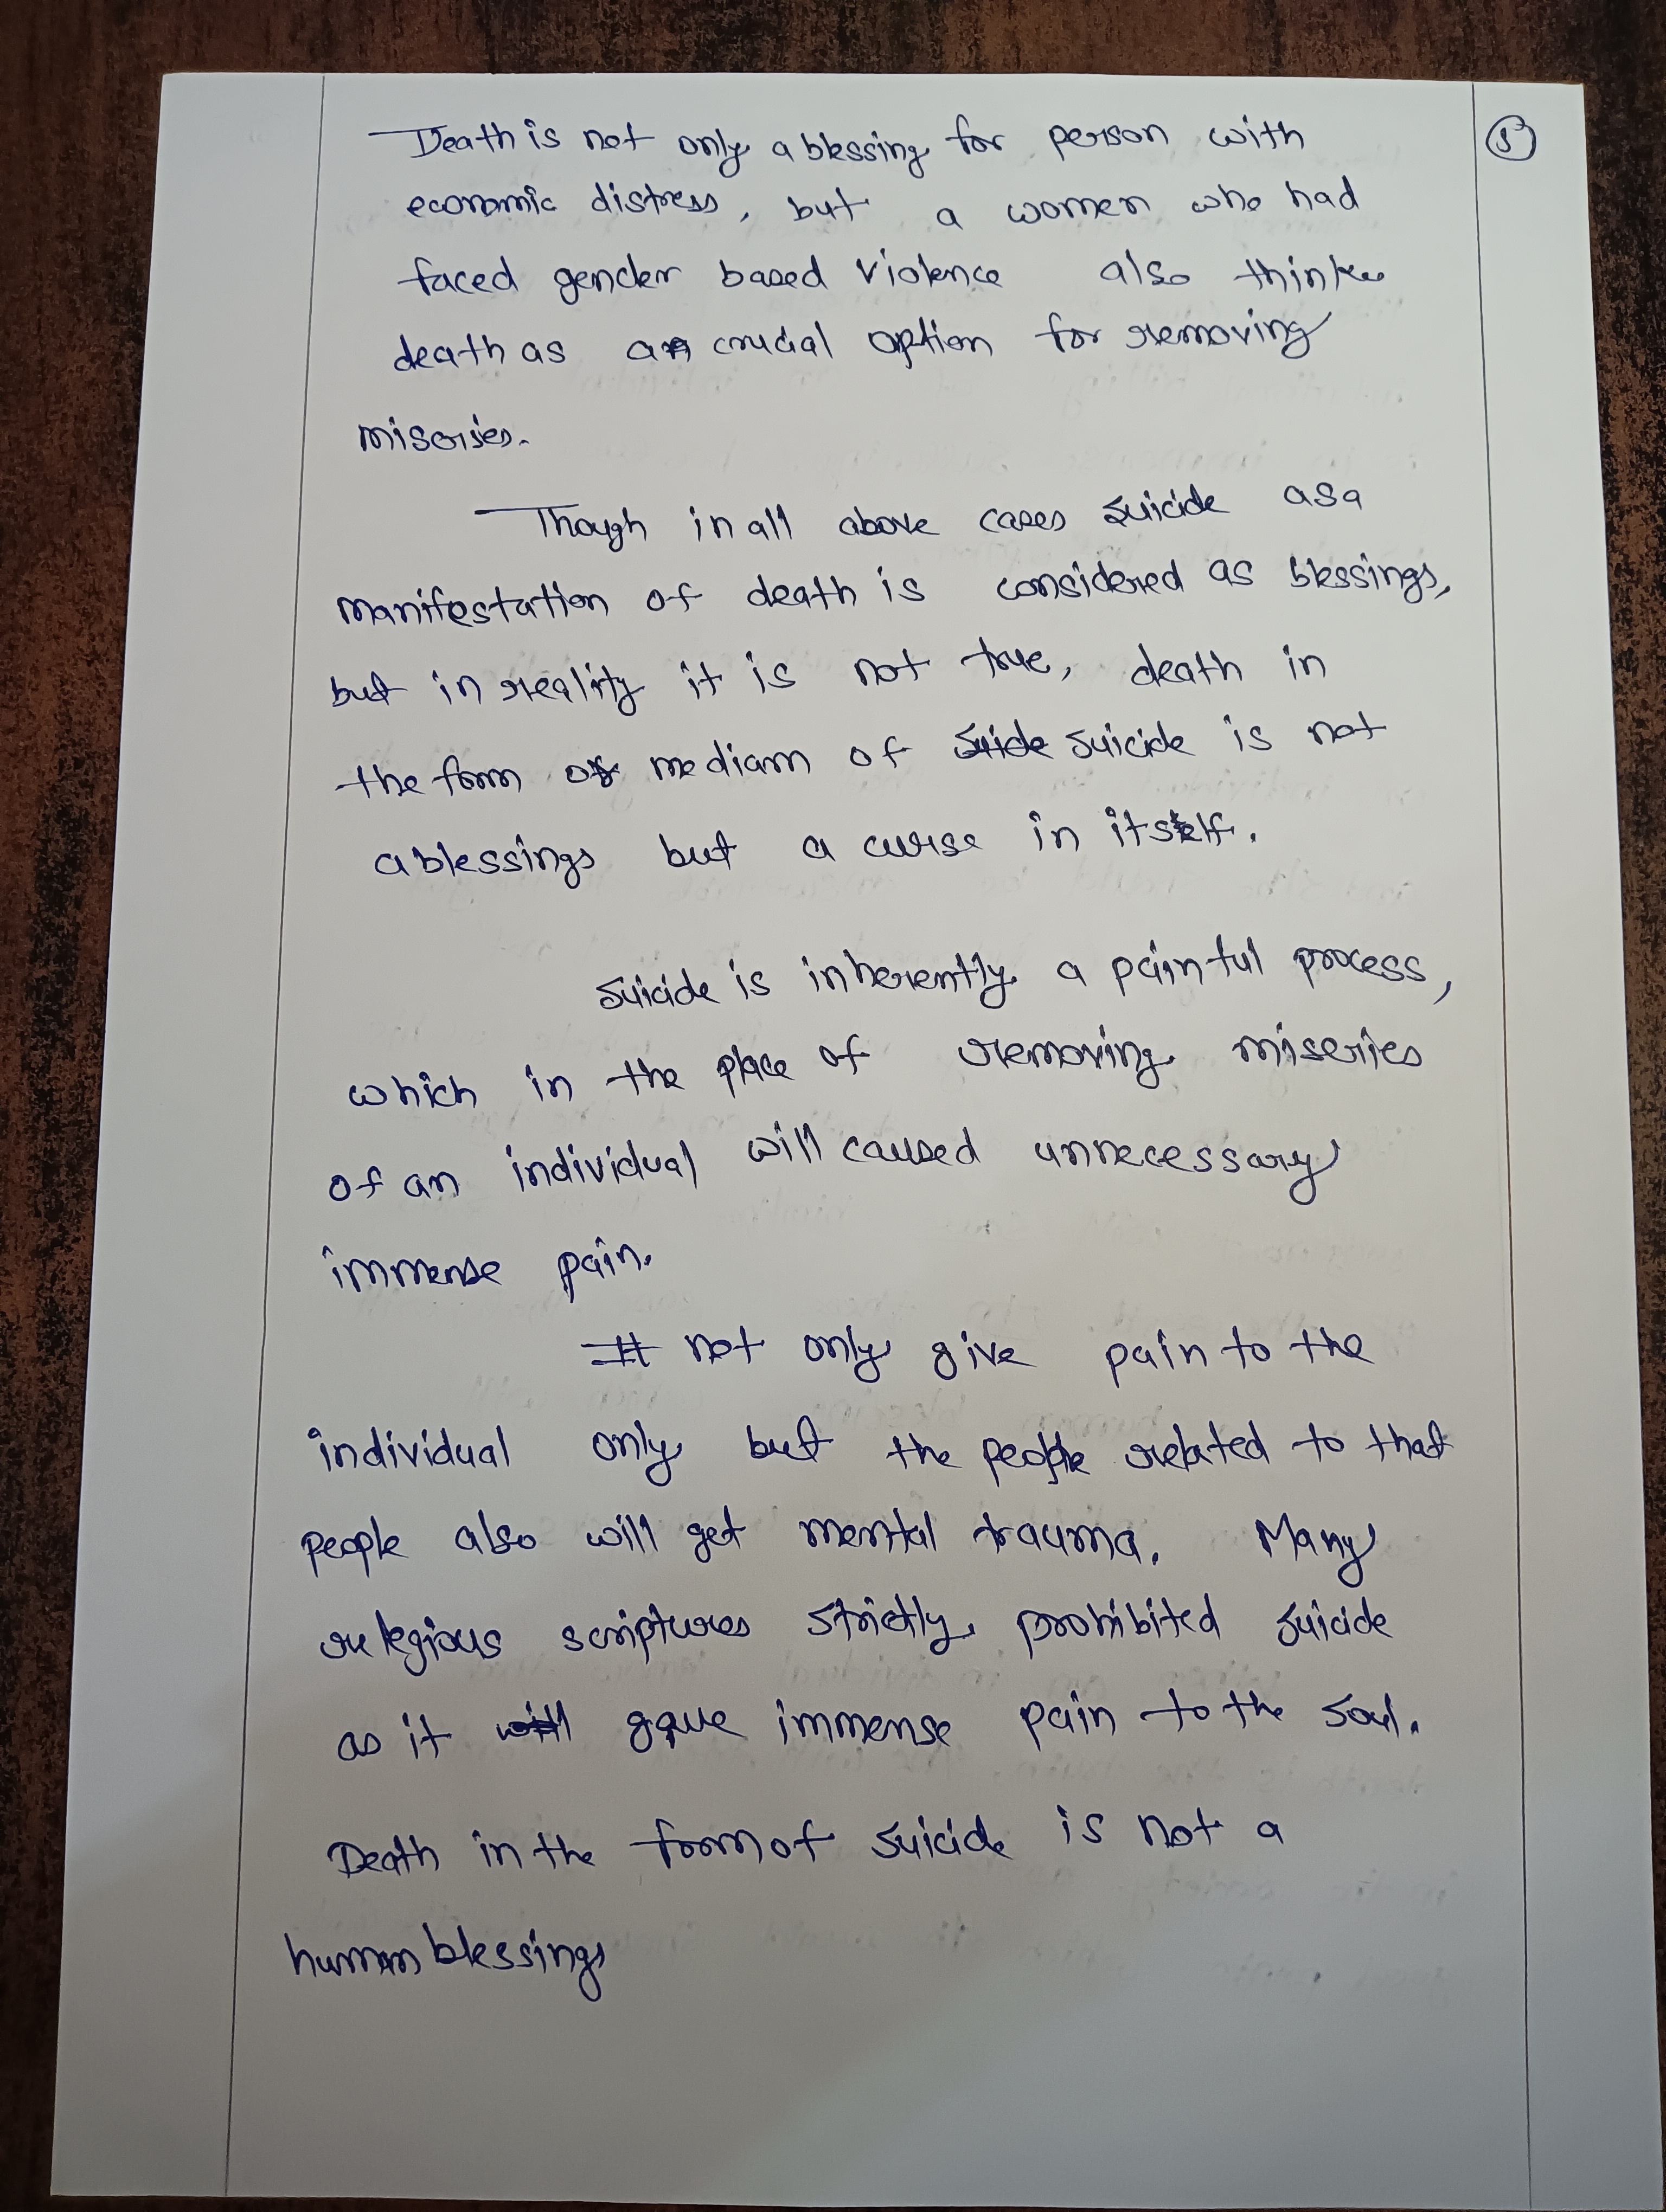 Death is not only a blessing for person with
5
economic distress, but a women who had
faced gender based violence also thinks
death as a crucial option for removing
miseries.
Though in all above cases suicide as a
manifestation of death is considered as blessings,
but in reality it is not true, death in
the form or mediam of suicide is not
a blessings but a curse in itself.
Suicide is inherently a painful process,
which in the place of removing miseries
of an individual will caused unnecessary
immense pain.
It not only give pain to the
individual only but the people related to that
people also will get mental trauma. Many
relegious scriptures strictly prohibited suicide
as it gave immense pain to the soul.
Death in the form of suicide is not a
human blessings